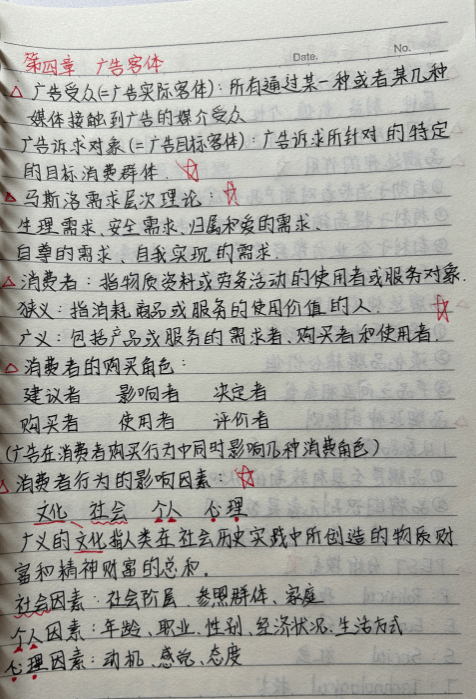 Date.
No.
第四章 广告客体
△ 广告受众(=广告实际客体)：所有通过某一种或者某几种
媒体接触到广告的媒介受众
广告诉求对象(=广告目标客体)：广告诉求所针对的特定
的目标消费群体. ☆
△ 马斯洛需求层次理论：☆
生理需求、安全需求、归属和爱的需求、
自尊的需求、自我实现的需求.
△ 消费者：指物质资料或劳务活动的使用者或服务对象.
狭义：指消耗商品或服务的使用价值的人. ☆
广义：包括产品或服务的需求者、购买者和使用者.
△ 消费者的购买角色：
建议者 影响者 决定者
购买者 使用者 评价者
(广告在消费者购买行为中同时影响几种消费角色)
△ 消费者行为的影响因素：☆
文化 社会 个人 心理
广义的文化指人类在社会历史实践中所创造的物质财
富和精神财富的总和.
社会因素：社会阶层、参照群体、家庭
个人因素：年龄、职业、性别、经济状况、生活方式
心理因素：动机、感觉、态度